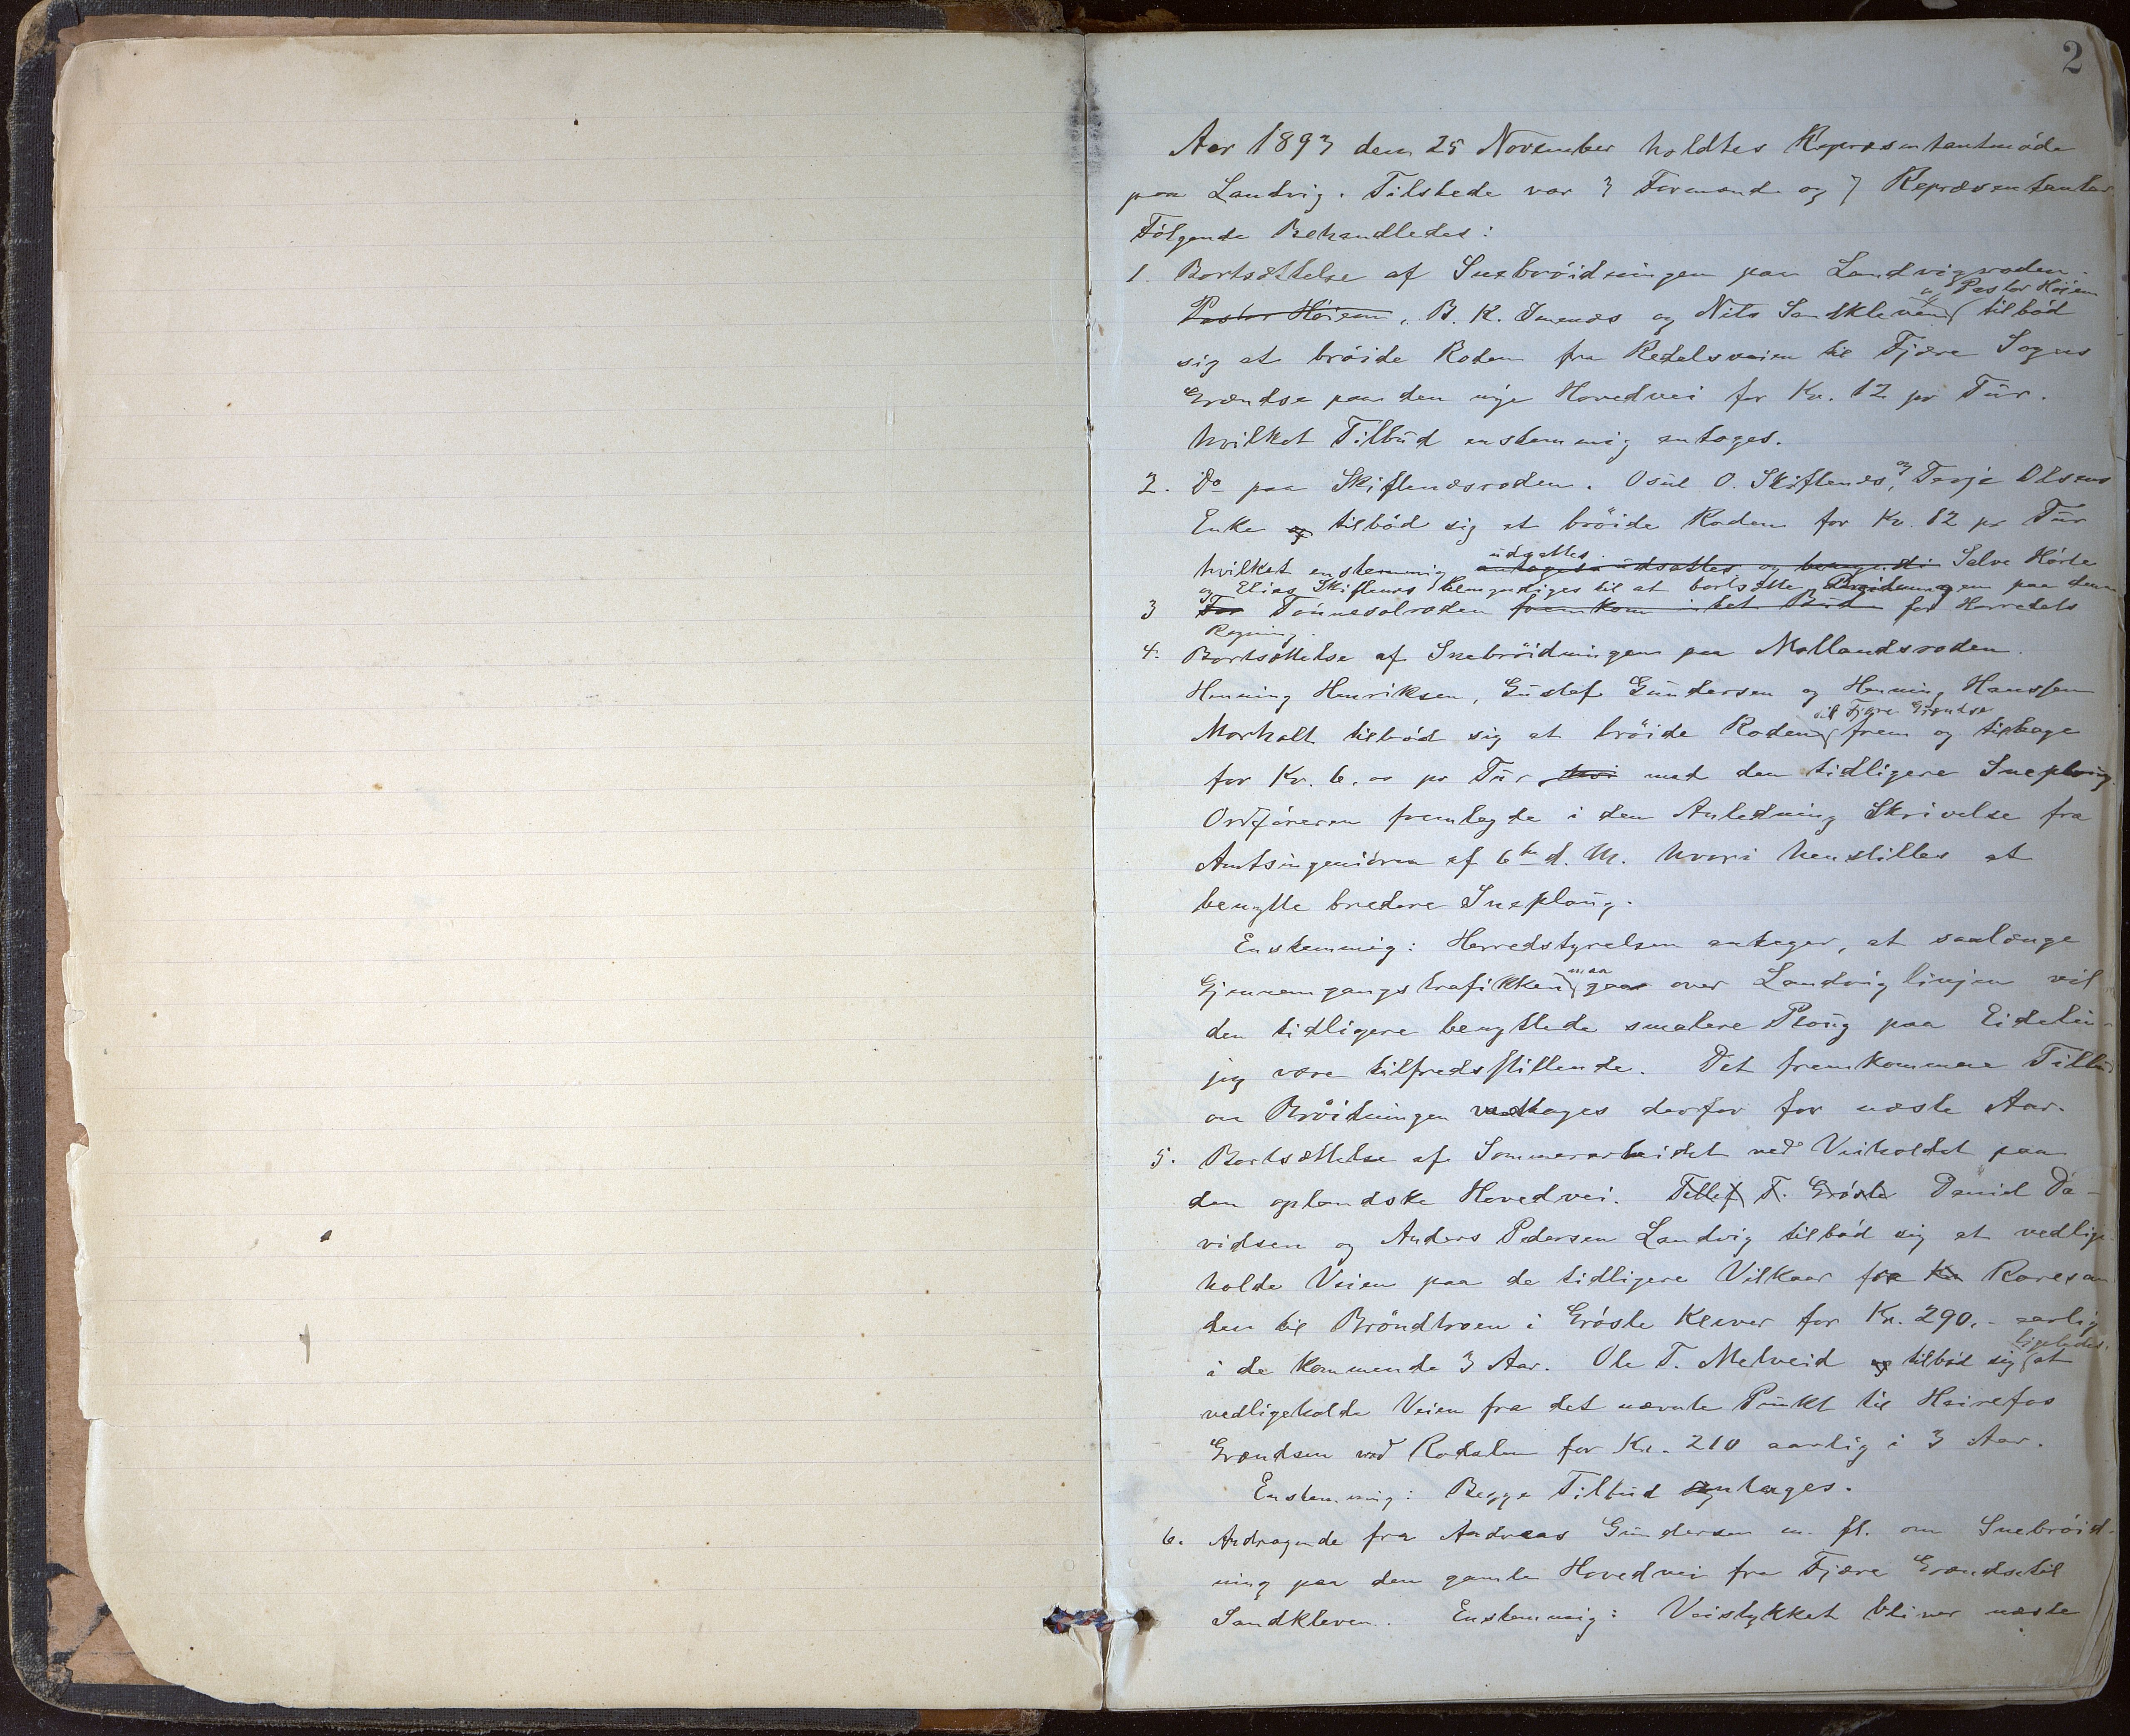 2
Aar 1893 den 25 November holdtes Repræsentantmøde
paa Landvig. Tilstede var 3 Formænd og 7 Repræsentanter
Følgende Behandledes:
1. Bortsættelse af Snebrøidningen paa Landvigroden.
og Pastor Høiem
Pastor Høiem, B. K. Inenæs og Nils Sandkleven tilbød
sig at brøide Roden fra Redalsveien til Fjære Sogns
Grændse paa den nye Hovedvei for Kr. 12 pr Tur.
hvilket Tilbud enstemmig antoges.
2. Do paa Skiftenæsroden. Osul O. Skiftenes, og Terje Olsens
Enke og tilbød sig at brøide Roden for Kr. 12 pr Tur
udsattes.
hvilket enstemmig antoges udsattes og bemyndi Salve Hørte
og Elias Skiftenes bemyndiges til at bortsætte Brøidningen paa denne
3 For Tønnesolroden fremkom intet Bud for Herredets
Regning.
4. Bortsættelse af Snebrøidningen paa Mollandsroden.
Henning Henriksen, Gustaf Gundersen og Henning Hanssen
til Fjære Grændse
Morholt tilbød sig at brøide Roden frem og tilbage
for Kr. 6.00 pr Tur hvi med den tidligere Sneploug.
Ordføreren fremlagde i den Anledning Skrivelse fra
Amtsingeniøren af 6te d. M. hvori henstilles at
benytte bredere Sneploug.
Enstemmig: Herredstyrelsen antager, at saalænge
maa
Gjennemgangstrafikken gaa over Landviglinjen vil
den tidligere benyttede smalere Ploug paa Eidelin-
jen være tilfredsstillende. Det fremkommne Tilbud
om Brøidningen vedtages derfor for næste Aar.
5. Bortsættelse af Sommerarbeidet ved Veiholdet paa
den oplandske Hovedvei. Tellef T. Grøsle Daniel Da-
vidsen og Anders Pedersen Landvig tilbød sig at vedlige-
holde Veien paa de tidligere Vilkaar fra Kr Roresan-
den til Brøndtroen i Grøsle Kleiver for Kr. 290.- aarlig
ligeledes
i de kommende 3 Aar. Ole T. Melveid og tilbød sig at
vedligeholde Veien fra det nævnte Punkt til Heirefos
Grændsen ved Rodalen for Kr. 210 aarlig i 3 Aar.
Enstemmig: Begge Tilbud antages.
6. Andragende fra Andreas Gundersen m. fl. om Snebrøid-
ning paa den gamle Hovedvei fra Fjære Grændse til
Sandkleven. Enstemmig: Veistykket bliver næste